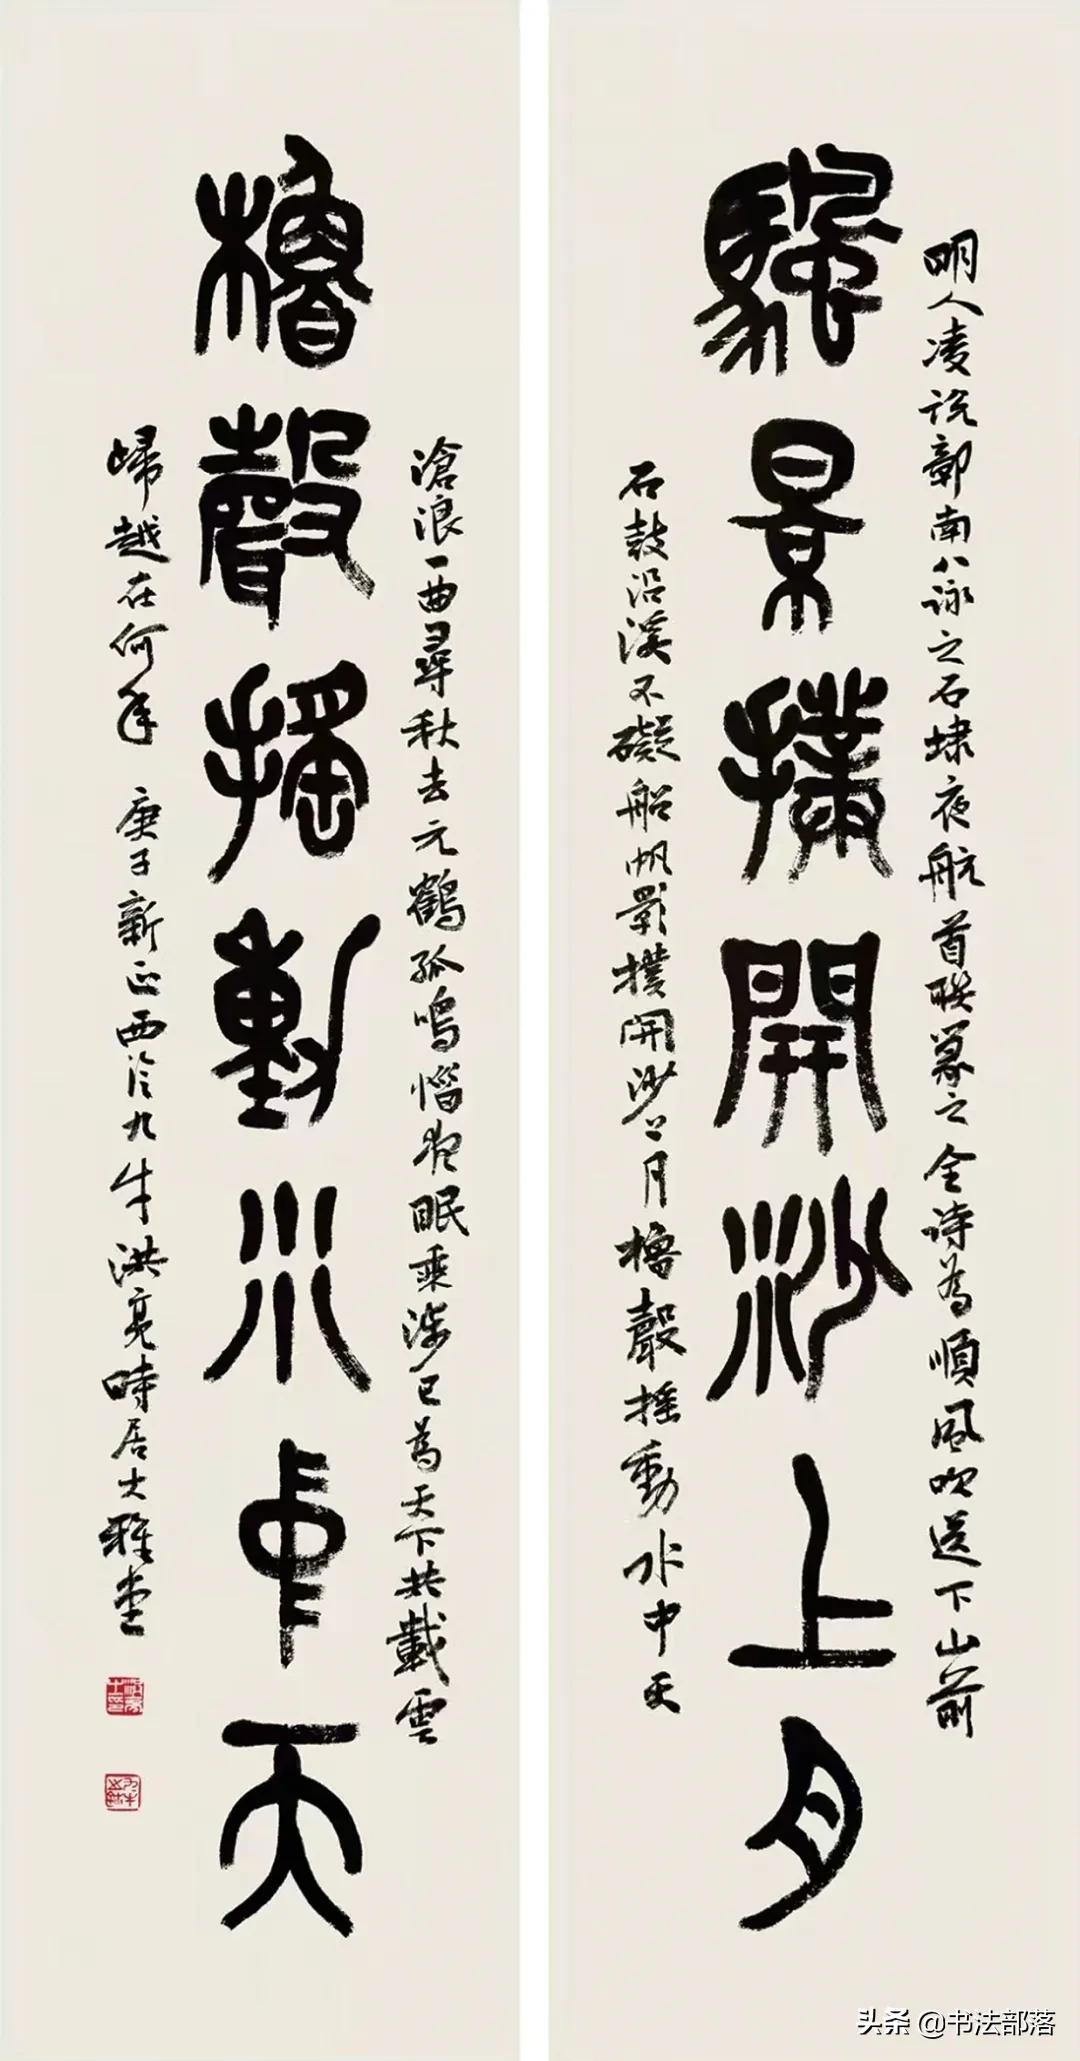 明人凌說鄣南八詠之石埭夜航首聯篆之全詩為順風吹送下山前
颿景撲開沙上月
石鼓沿溪不礙船帆影撲開沙上月櫓聲搖動水中天
滄浪一曲尋秋去元鶴孤鳴惱夜眠乘涉已為天下共載雲
櫓聲搖動水中天
歸越在何年 庚子新正西泠九牛洪亮時居大雅堂
头条 @书法部落